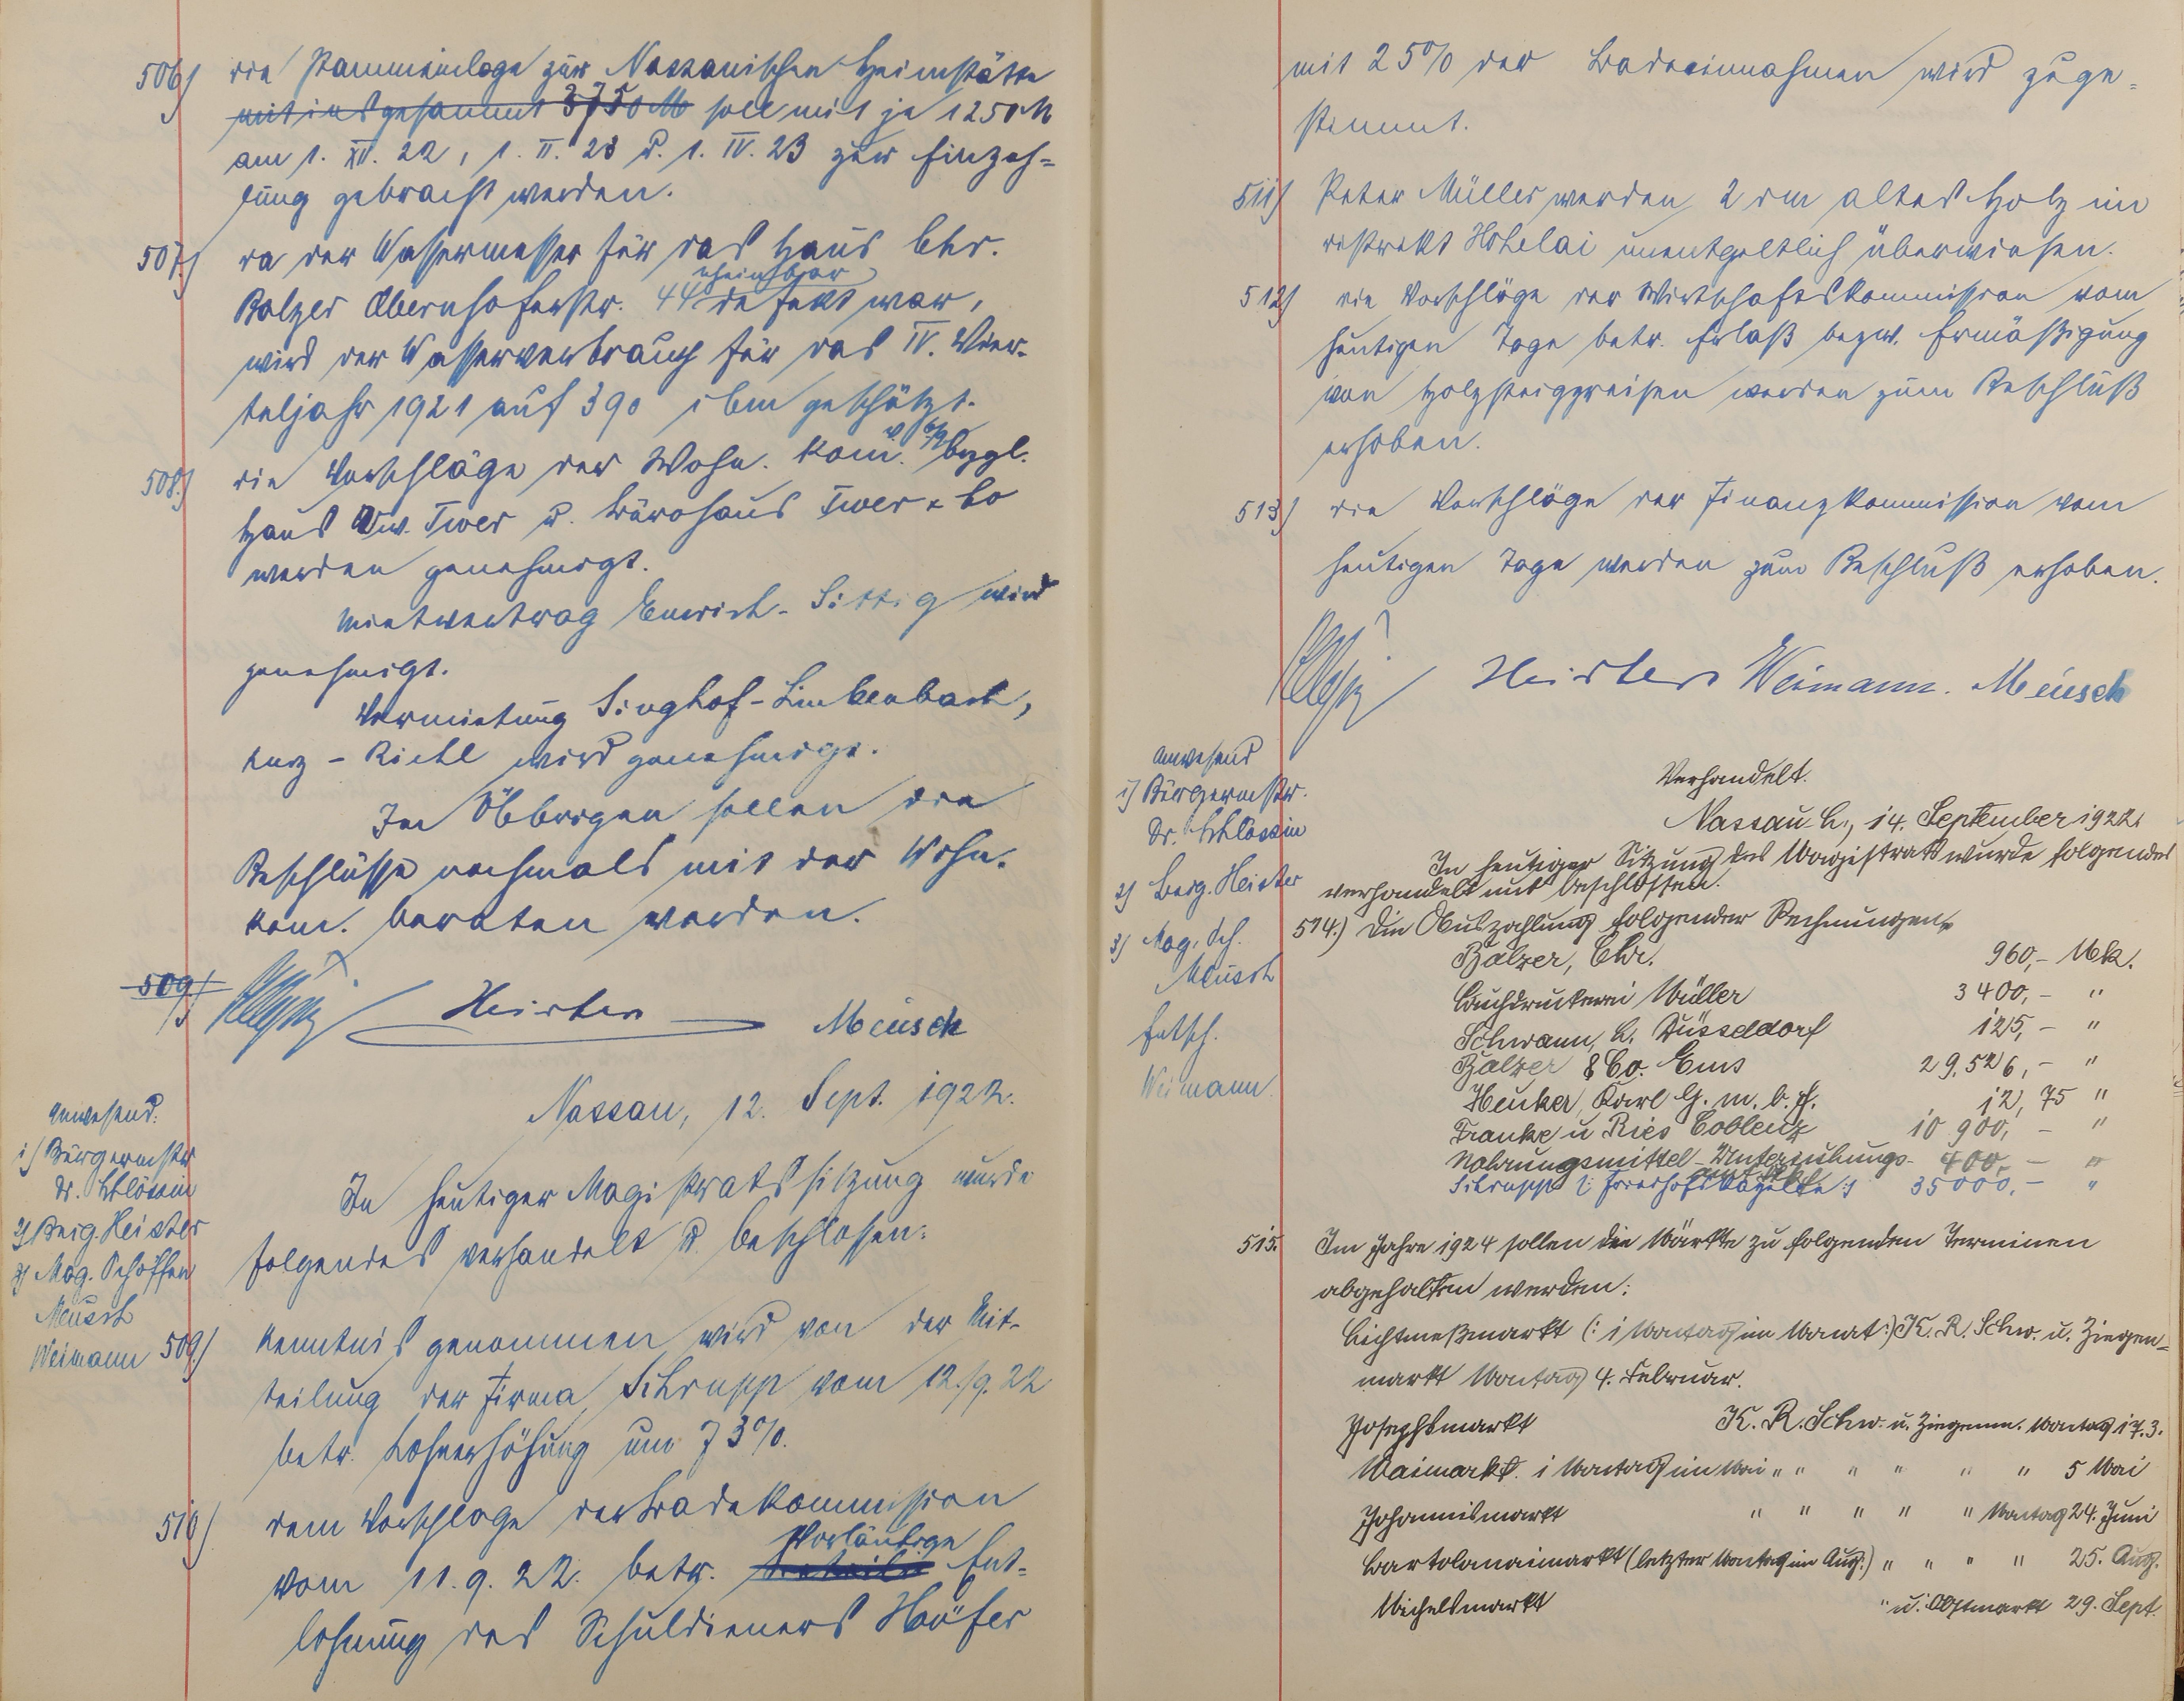 506) die Stammeinlage zur Nassauischen Heimstätte
mit insgesammt 3750 M soll mit je 1250 M
am 1. XII. 22, 1. II. 23 u. 1. IV. 23 zur Einzah=
lung gebracht werden.
507) da der Wassermesser für das Haus Chr.
Balzer Obernhoferstr. 44 scheinbar defekt war,
wird der Wasserverbrauch für das IV. Vier-
teljahr 1921 auf 390 cbm geschätzt.
508.) die Vorschläge der Wohn. Kom. v. bzgl.
Haus Ww. Twer u. Bürohaus Twer & Co
werden genehmigt.
Mietvertrag Emrich-Sittig wird
genehmigt.
Vermietung Singhof-Linkenbach,
Kurz - Riehl wird genehmigt.
Im Übbrigen sollen die
Beschlüsse nochmals mit der Wohn.
kom. beraten werden.
509)
Heister Meusch
Nassau, 12. Sept. 1922.
Anwesend:
1) Bürgermstr
Dr. Schlössin
2) Beig. Heister
3) Mag. Schöffen
Meusch
Weimann
In heutiger Magistratssitzung wurde
folgendes verhandelt u. beschlossen:
509.) Kenntnis genommen wird von der Mit-
teilung der Firma Schrupp vom 12./9. 22
betr. Lohnerhöhung um 73%.
510) dem Vorschlage der Badekommission
vom 11. 9. 22. betr. vorläufige Ent=
lohnung des Schuldieners Höfer
mit 25% der Badeeinnahmen wird zuge=
stimmt.
511) Peter Müller werden 2 rm altes Holz im
distrikt Hohelai unentgeltlich überwiesen.
512) die Vorschläge der Wirtschaftskommission vom
heutigen Tage betr. Erlaß bezw. Ermäßigung
von Holzsteigpreisen werden zum Beschluß
erhoben.
513) die Vorschläge der Finanzkommission vom
heutigen Tage werden zum Beschluß erhoben.
Heister Weimann. Meusch
Anwesend
1) Bürgermstr.
Dr. Schlössin
2) Beig. Heister
3) Mag. Sch.
Meusch
Entsch.
Weimann.
Verhandelt.
Nassau L., 14. September 1922.
In heutiger Sitzung des Magistrats wurde folgendes
verhandelt und beschlossen.
514.) Die Auszahlung folgender Rechnungen
Balzer, Chr. 960,- Mk.
Buchdruckerei Müller 3400,- "
Schwann, L. Düsseldorf 125,- "
Balzer & Co. Ems 29,526,- "
Heuker, Karl G. m. b. H. 12,75 "
Franke u Ries Coblenz 10 900,- "
Nahrungsmittel-Untersuchungs- 400,- "
amt
Schrupp 35000,- "
515. Im Jahre 1924 sollen die Märkte zu folgenden Terminen
abgehalten werden:
Lichtmeßmarkt (: 1 Montag im Monat :) K. R. Schw. u. Ziegen=
markt Montag 4. Februar.
Josephsmarkt K. R. Schw. u. Ziegenm. Montag 17. 3.
Maimarkt. 1 Montag im Mai " " " " " " 5 Mai
Johannismarkt " " " " " Montag 24. Juni
Bartolomaimarkt (letzter Montag im Aug.) " " " " 25. Aug.
Michelsmarkt " u. Obstmarkt 29. Sept.